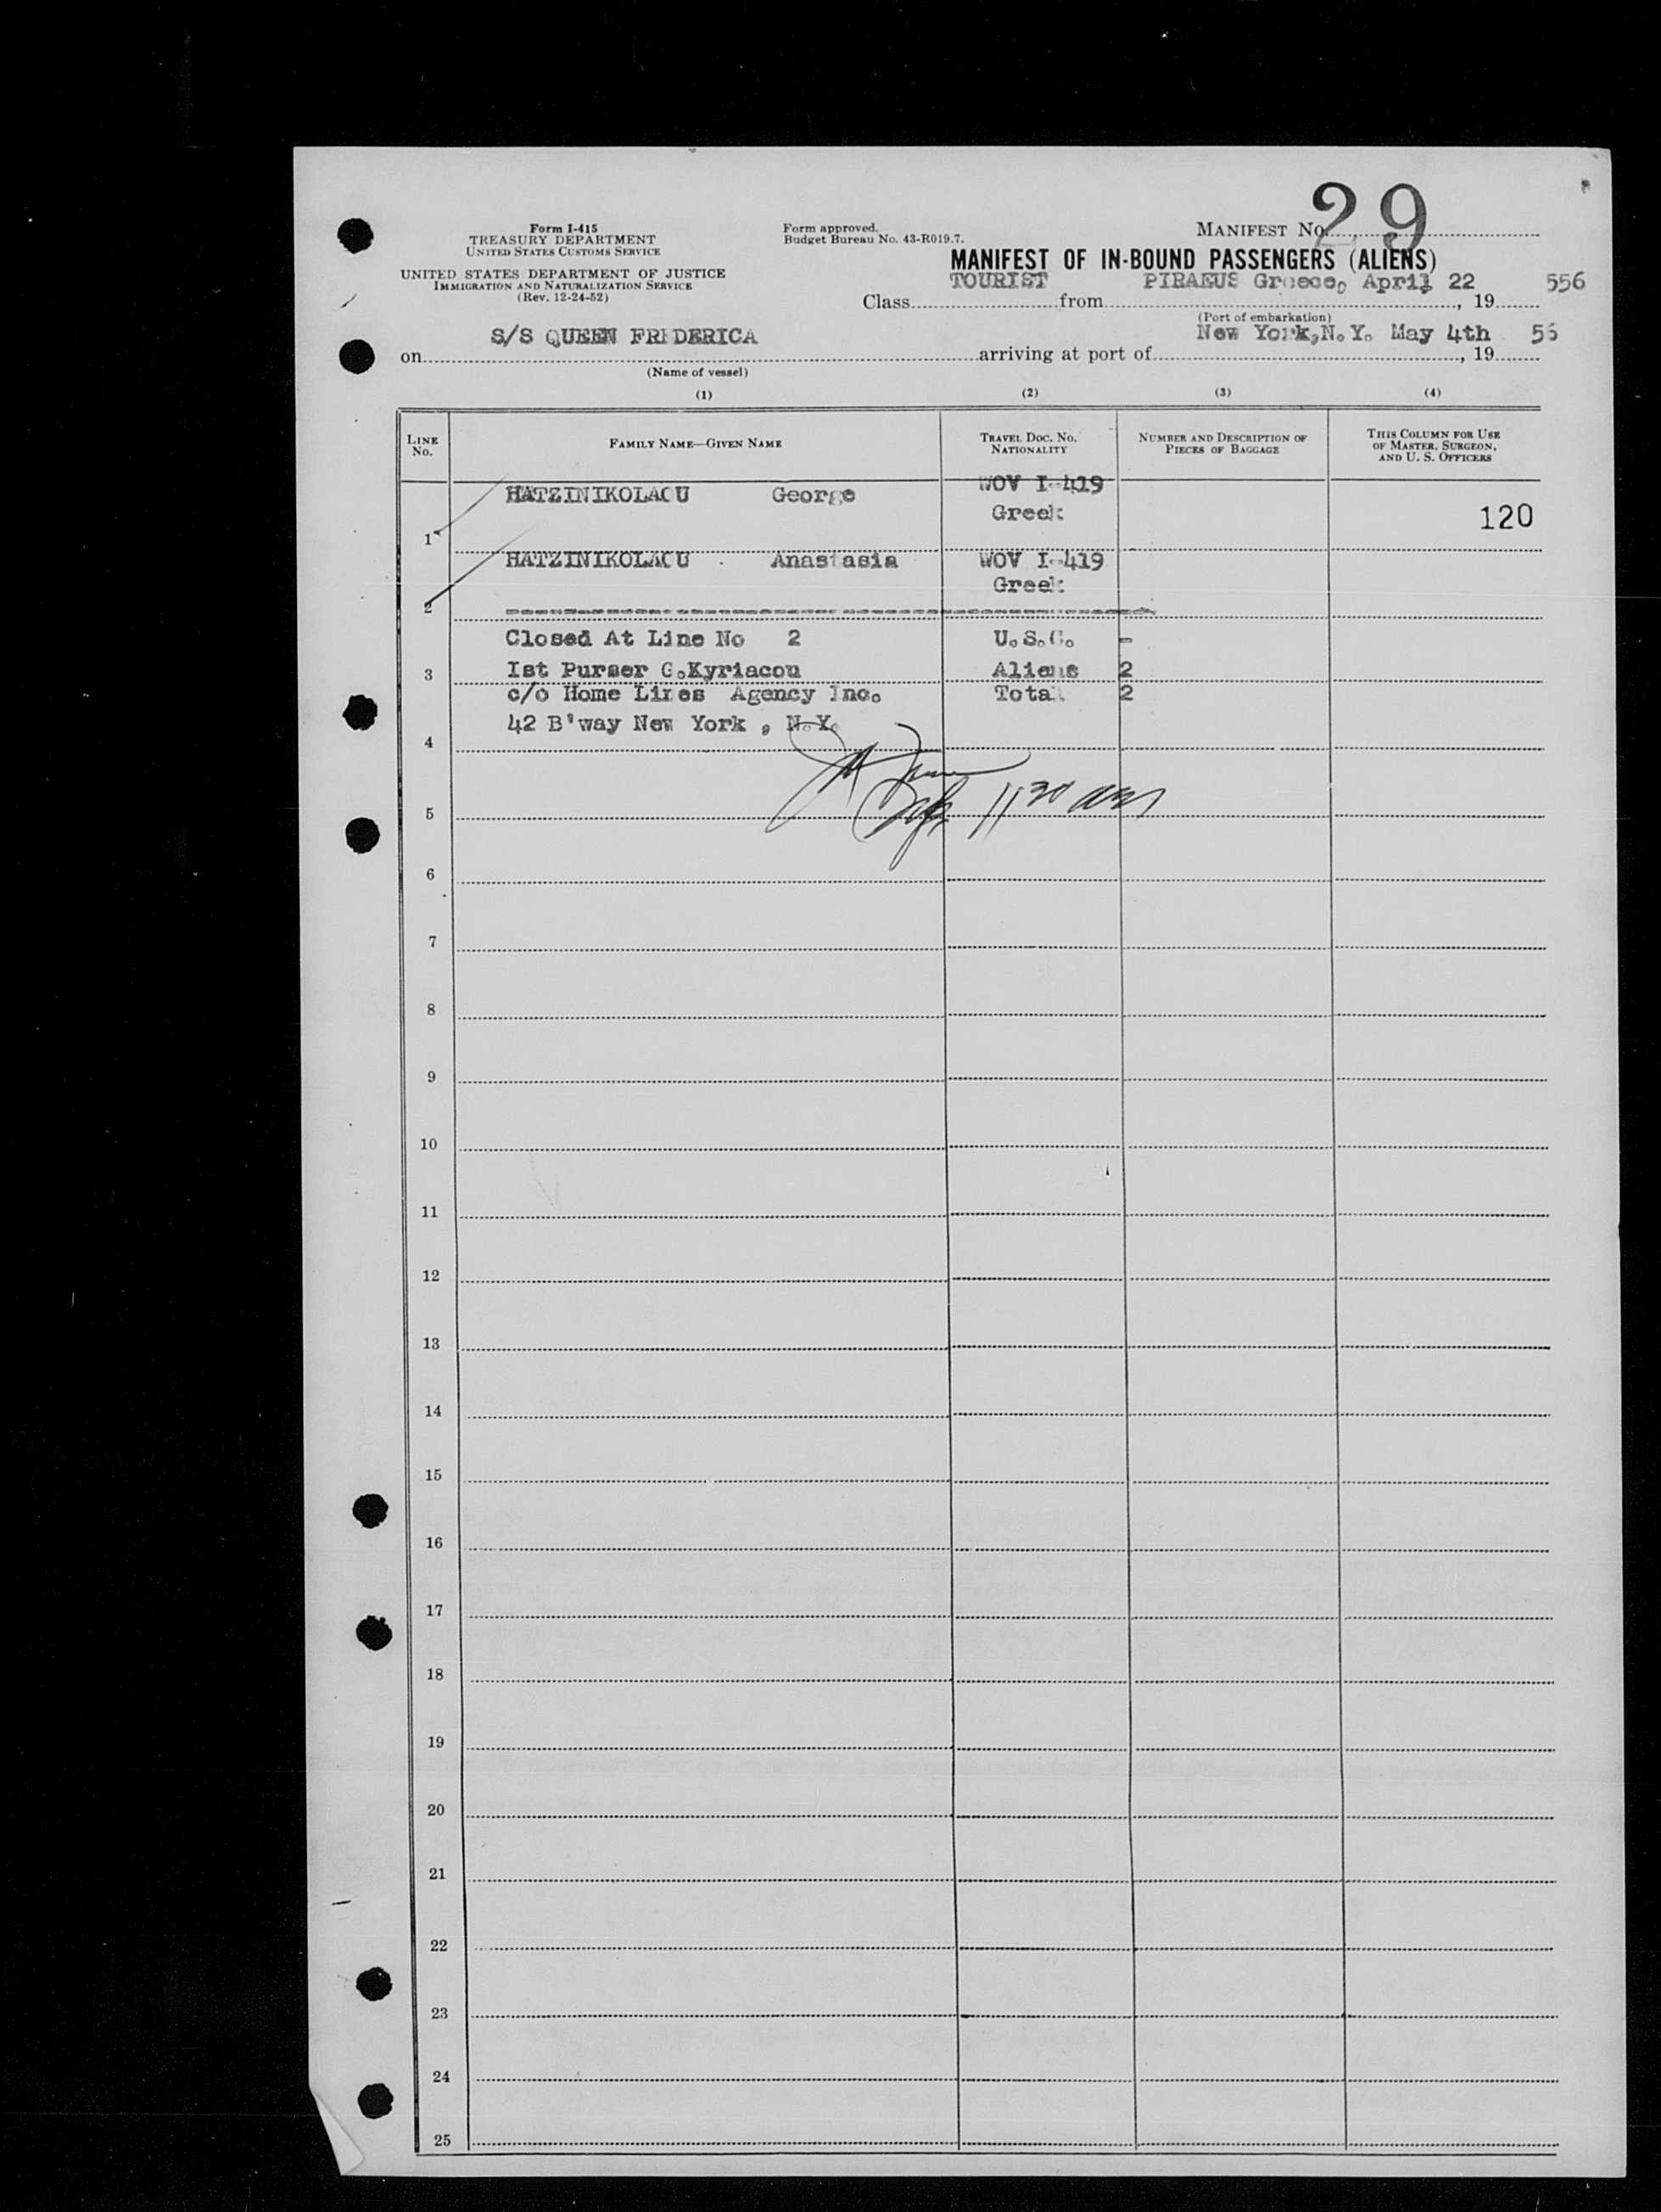 29
Form I-415
TREASURY DEPARTMENT
UNITED STATES CUSTOMS SERVICE
UNITED STATES DEPARTMENT OF JUSTICE
IMMIGRATION AND NATURALIZATION SERVICE
(Rev. 12-24-52)
Form approved.
Budget Bureau No. 43-R019.7.
MANIFEST No.
MANIFEST OF IN-BOUND PASSENGERS (ALIENS)
Class TOURIST from PIRAEUS Greece, April 22, 19 556
(Port of embarkation)
on S/S QUEEN FREDERICA arriving at port of New York, N.Y. May 4th, 19 56
(Name of vessel)
(1) (2) (3) (4)
LINE No. FAMILY NAME—GIVEN NAME TRAVEL DOC. NO. NATIONALITY NUMBER AND DESCRIPTION OF PIECES OF BAGGAGE THIS COLUMN FOR USE OF MASTER, SURGEON, AND U. S. OFFICERS
HATZINIKOLAOU George WOV I-419
Greek 120
1
HATZINIKOLAOU Anastasia WOV I-419
Greek
2
Closed At Line No 2 U.S.C. -
3 Ist Purser G.Kyriacou Aliens 2
c/o Home Lines Agency Inc. Total 2
42 B'way New York , N.Y.
4
11 30 am
5
6
7
8
9
10
11
12
13
14
15
16
17
18
19
20
21
22
23
24
25